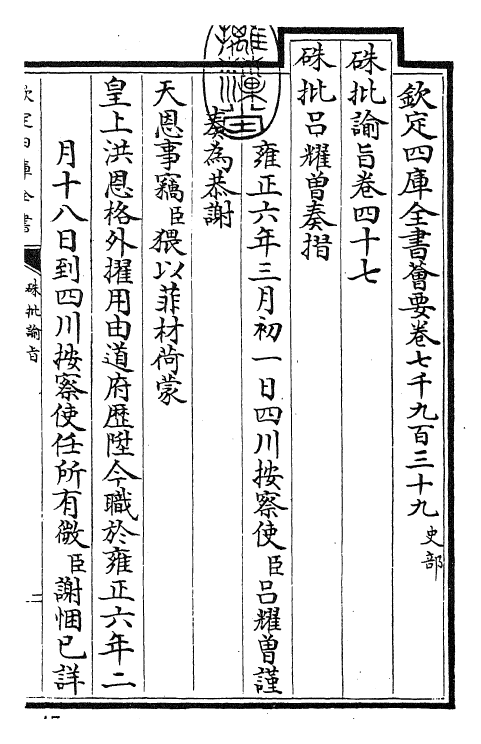 欽定四庫全書薈要卷七千九百三十九 史部
硃批諭旨卷四十七
硃批吕耀曾奏摺
雍正六年三月初一日四川按察使臣吕耀曾謹
奏為恭謝
天恩事竊臣猥以菲材荷蒙
皇上洪恩格外擢用由道府歴陞今職於雍正六年二
月十八日到四川按察使任所有微臣謝悃已詳
欽定四庫全書
硃批諭旨